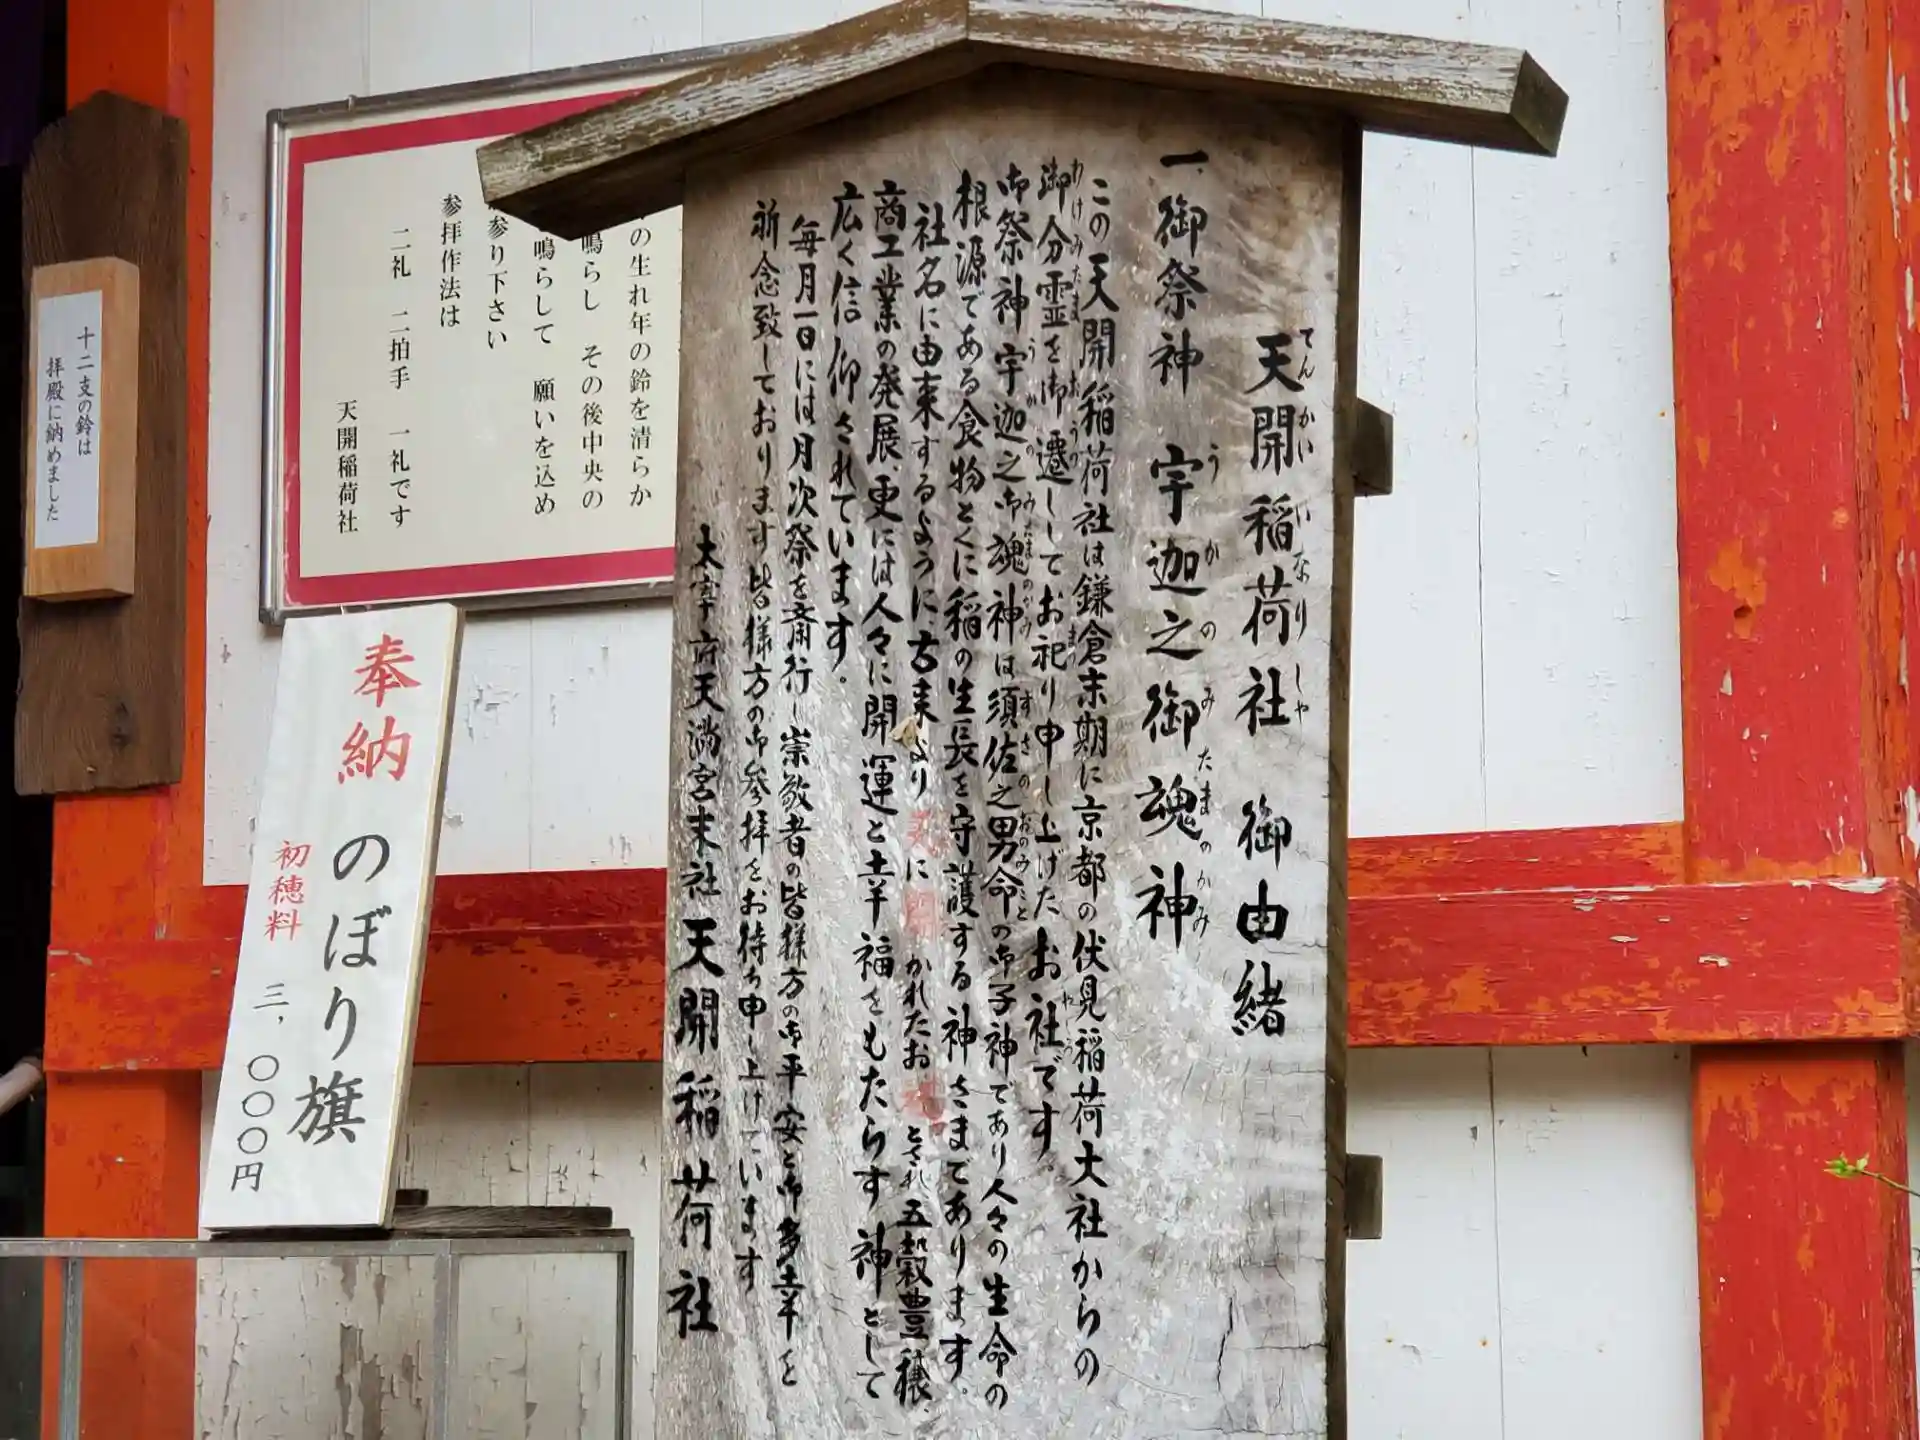 天開稲荷社 御由緒
てんかいいなりしゃ
一、御祭神 宇迦之御魂神
うかのみたまのかみ
この天開稲荷社は鎌倉末期に京都の伏見稲荷大社からの
御分霊を御遷ししてお祀り申し上げたお社です。
わけみたま まつ やしろ
御祭神宇迦之御魂神は須佐之男命の御子神であり人々の生命の
うかのみたまのかみ すさのおのみこと
根源である食物とくに稲の生長を守護する神さまであります。
社名に由来するように、古来より 天に開かれたお とされ五穀豊穣、
商工業の発展、更には人々に開運と幸福をもたらす神として
広く信仰されています。
毎月一日には月次祭を斎行し崇敬者の皆様方の御平安と御多幸を
祈念致しております 皆様方の御参拝をお待ち申し上げています
太宰府天満宮末社 天開稲荷社
の生れ年の鈴を清らか
鳴らし その後中央の
鳴らして 願いを込め
参り下さい
参拝作法は
二礼 二拍手 一礼です
天開稲荷社
奉納 のぼり旗
初穂料 三,〇〇〇円
十二支の鈴は
拝殿に納めました